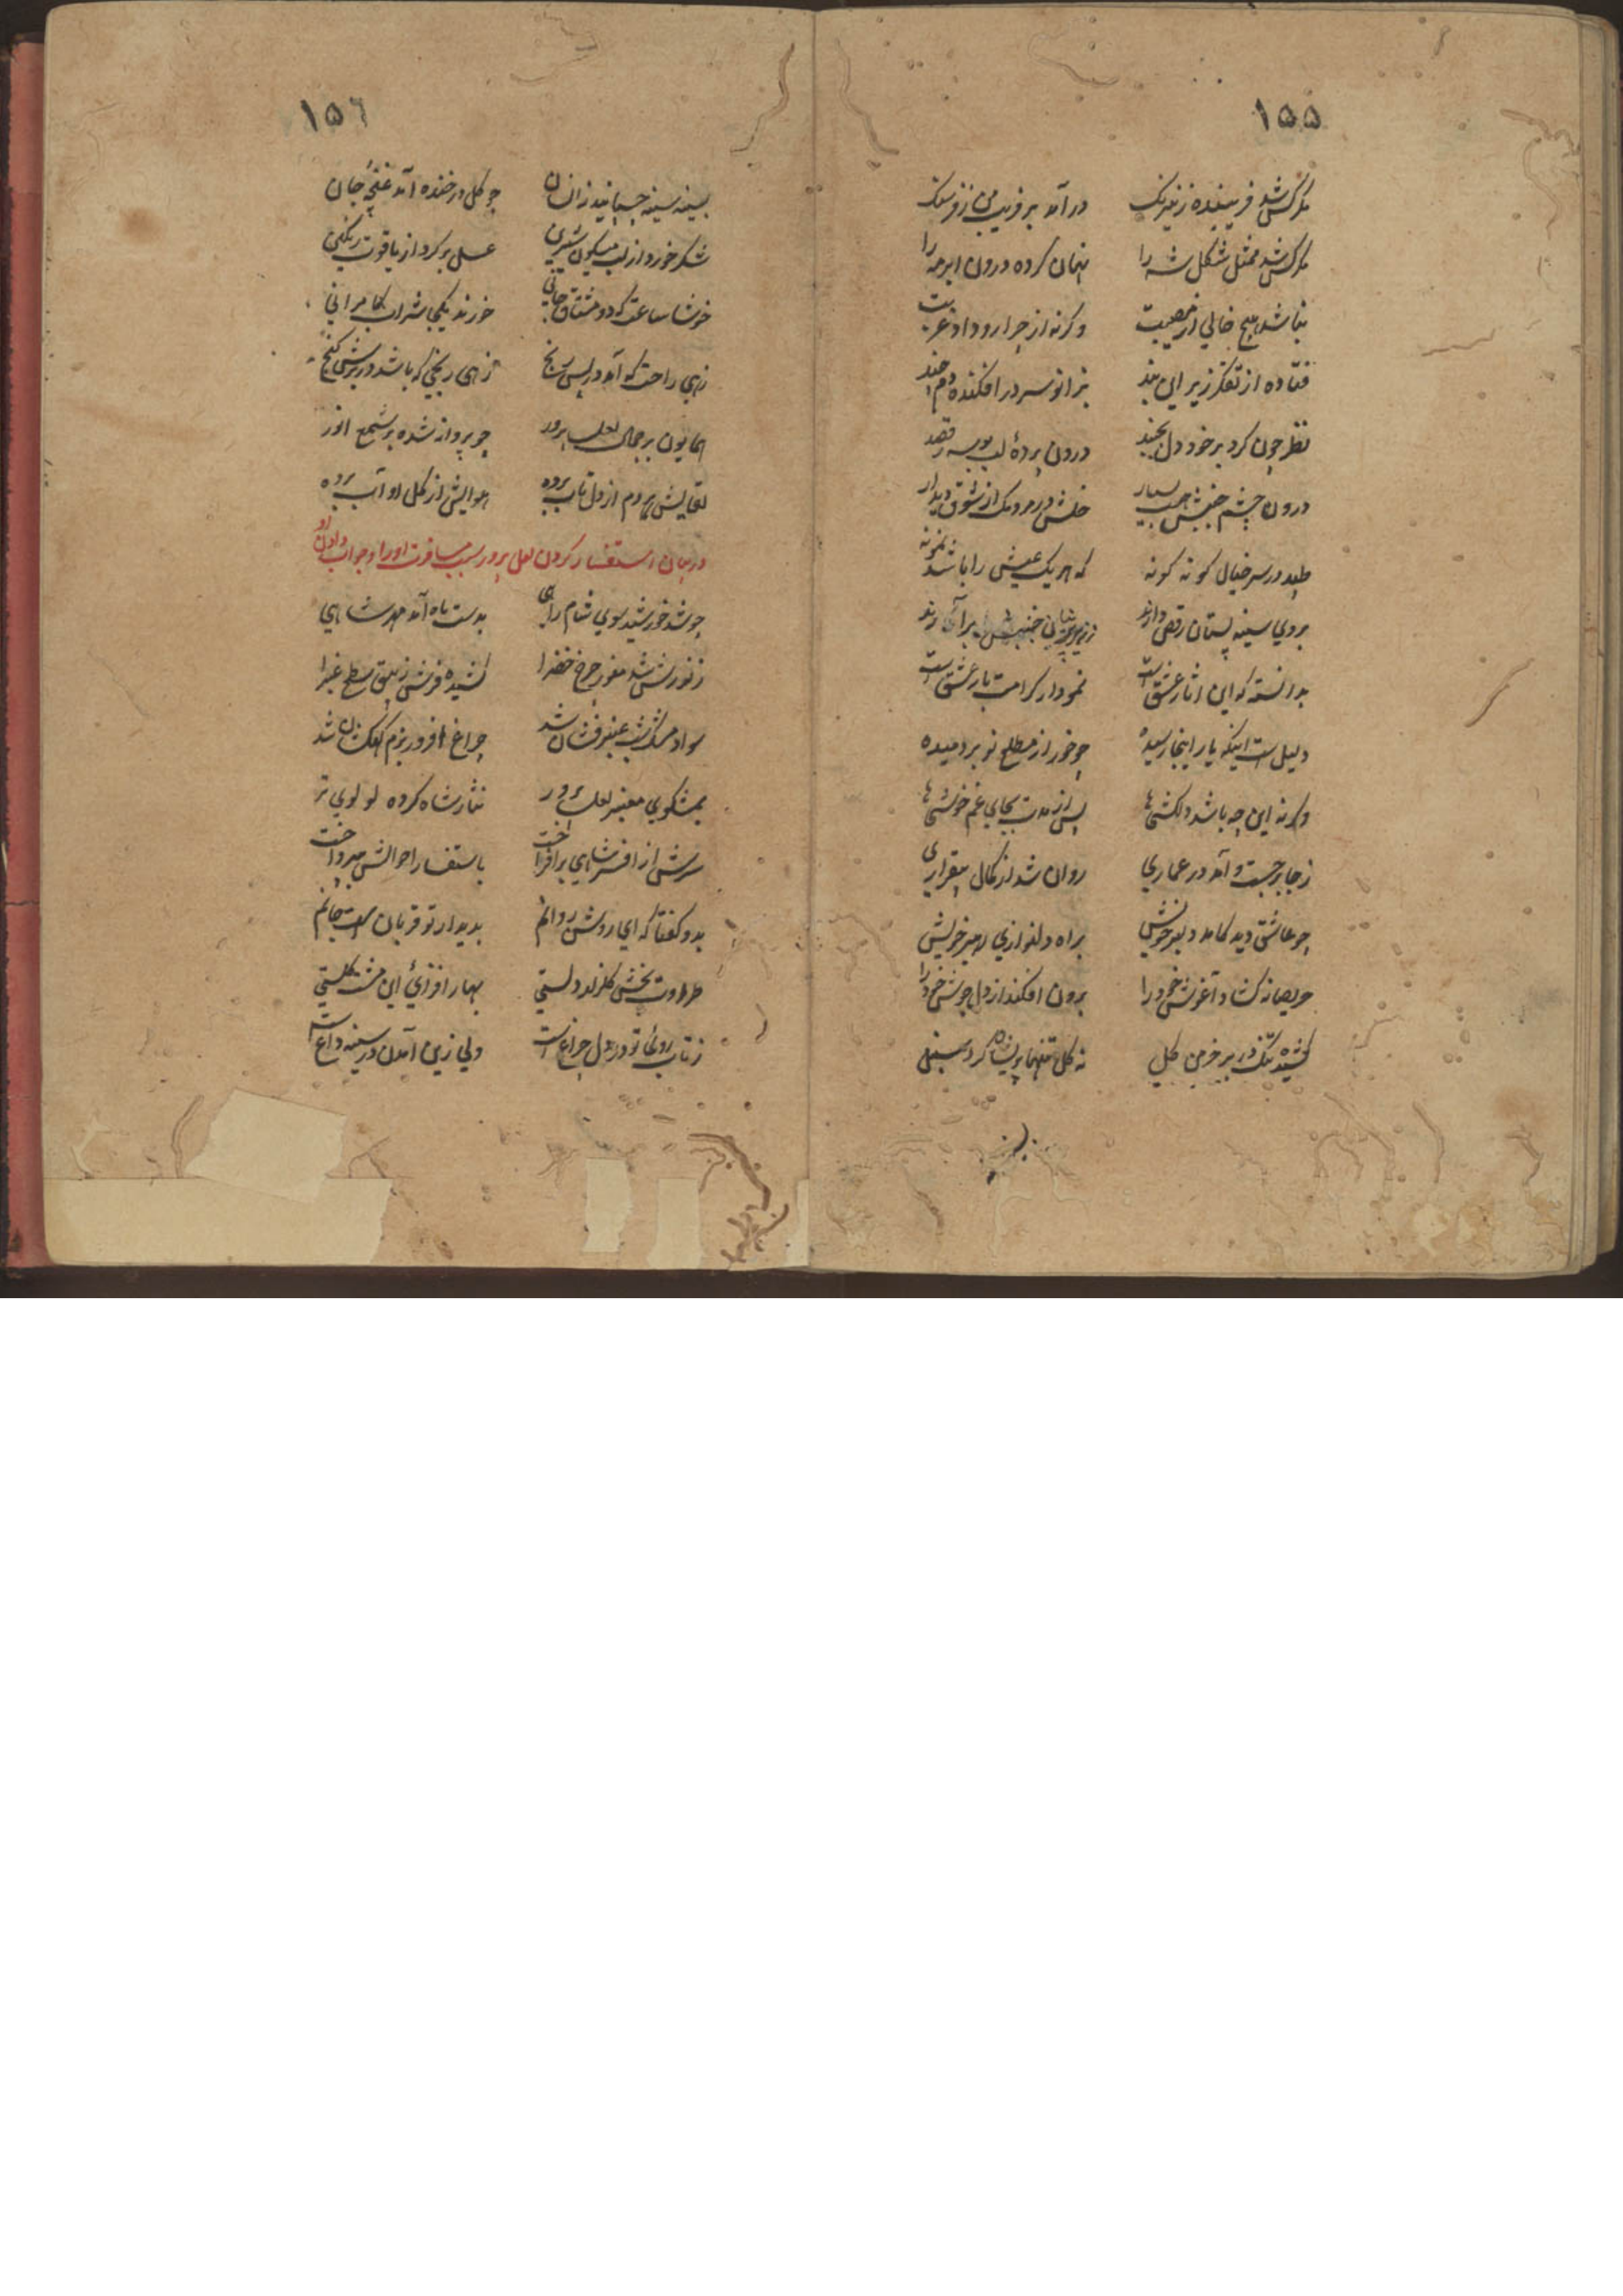 ١٥٥
مگر کس شد فریبنده ز نیرنگ درآمد بر فریب من ز فرسنگ
مگر کس شد ممثل شکل شه را نهان کرده درون ابر مه را
نباشد هیچ خالی از مصیبت وگرنه از چرا رو داد غربت
فتاده از تفکر زیر این بند بزانو سر در افکنده دم چند
نظر چون کرد بر خود دل بجنبد درون پردهٔ لب بوسه رقصد
درون چشم جنبش بسیار خلش در مردمک از شوق دیدار
طپد در سر خیال گونه گونه که هر یک عیش را باشد نمونه
بروی سینه پستان رقص دارند
بدانست که این آثار عشق است نمودار کرامت بار عشق است
دلیل است اینکه یار اینجا رسیده چو خور از مطلع نو بردمیده
وگرنه این چه باشد دلکشی‌ها پس از مدت بجای غم خوشی‌ها
ز جا برجست و آمد در عماری روان شد از کمال بیقراری
چو عاشق دید کامد دلبر خویش براه دلنوازی رهبر خویش
حریصانه گشاد آغوش خود را برون افکند از دل جوش خود را
کشیده تنگ در بر خرمن گل نه گل تنها پریشان کرد سنبل
١٥٦
بسینه سینه چسپانید زانسان چو گل در خنده آمد غنچهٔ جان
شکر خورد از لب میگون شیرین عسل بر کرد از یاقوت رنگین
خوشا ساعت که دو مشتاق جانی خورند یکجا شراب کامرانی
زهی راحت که آمد در پس رنج زهی رنجی که باشد در برش گنج
همایون بر جمال لعل پرور چو پروانه شده بر شمع انور
لقایش هر دم از دل تاب برده هوایش از گل او آب برده
در بیان استفسار کردن لعل پرور سبب مسافرت او را و جواب دادن او
چو شد خورشید سوی شام راهی بدست ماه آمد مهر شاهی
ز نورش شد منور چرخ خضرا کشیده فرش زیبق سطح غبرا
سواد مشک شب عنبرفشان شد چراغ افروز بزم کهکشان شد
بمشکوی معنبر لعل پرور نثار شاه کرده لولوی تر
سرش از افسر شاهی برافراخت باستفسار احوالش بپرداخت
بدو گفتا که ای روشن روانم بدیدار تو قربان است جانم
طراوت بخش گلزار دلستی بهار افزای این مشت گلستی
ز تاب روی تو در دل چراغ است ولی زین آمدن در سینه داغ است